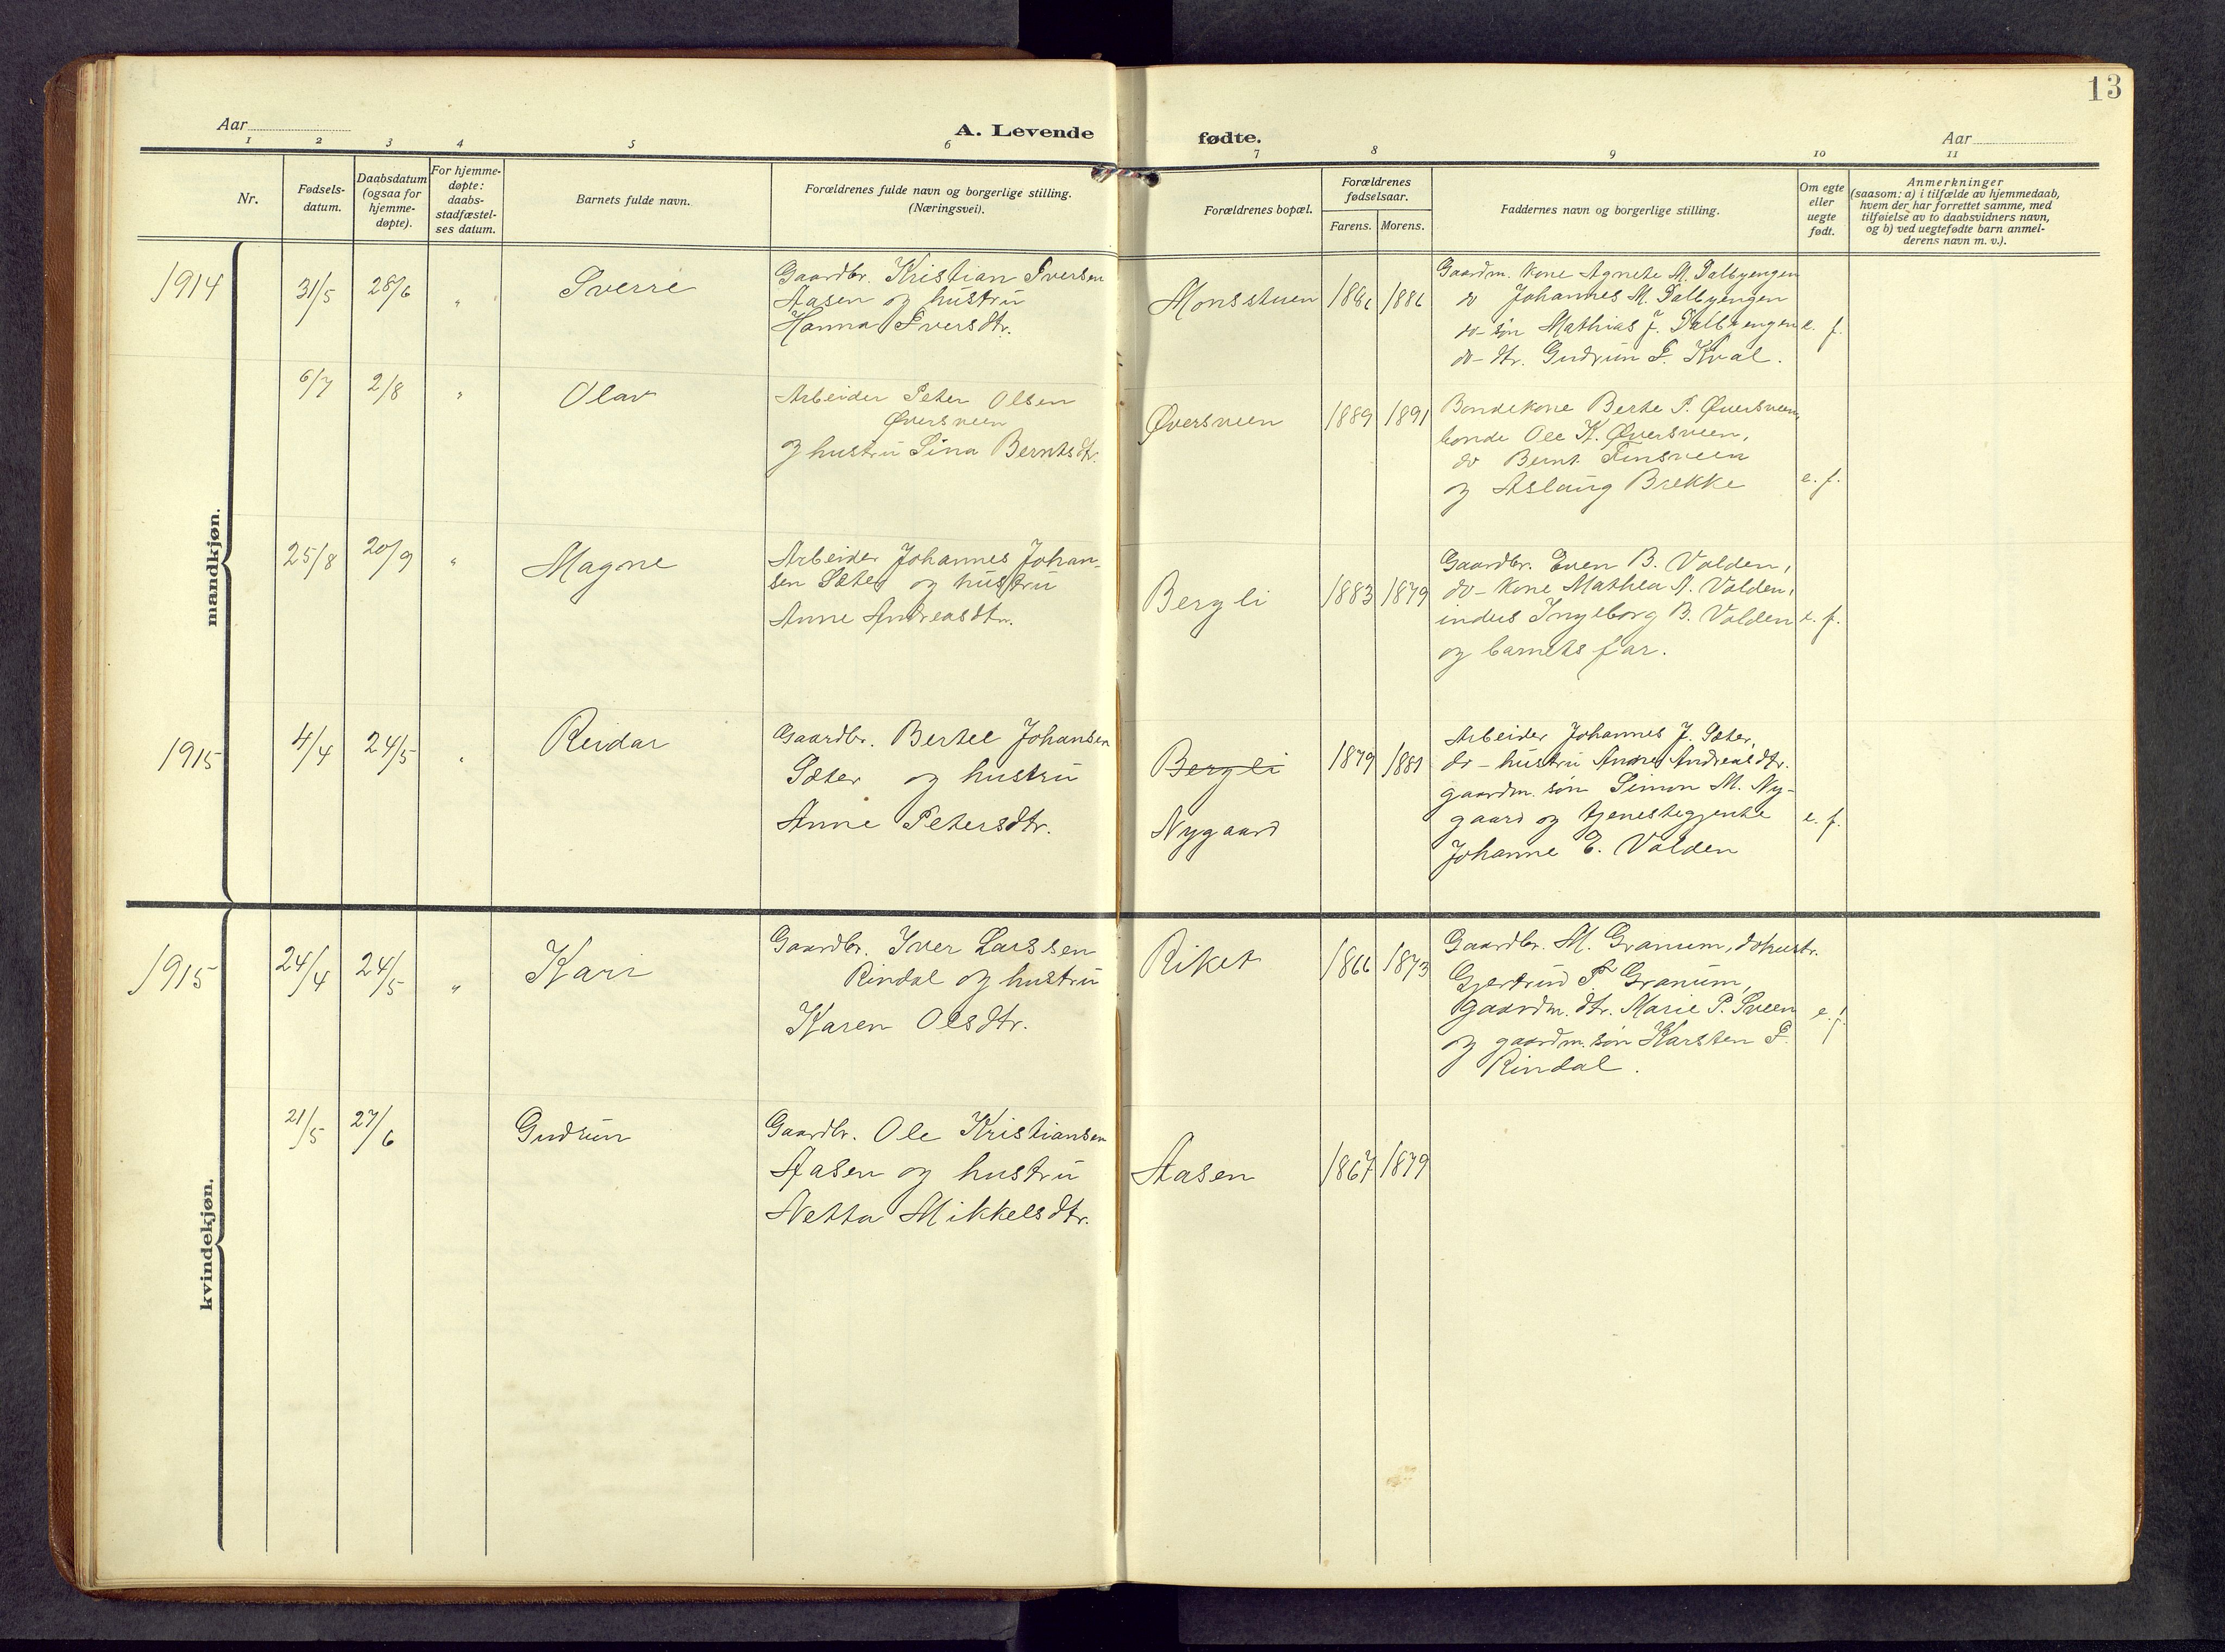 13
Aar
A. Levende
fødte.
Aar
1 2 3 4 5 6 7 8 9 10 11
Nr.
Fødsels-
datum.
Daabsdatum
(ogsaa for
hjemme-
døpte).
For hjemme-
døpte:
daabs-
stadfæstel-
ses datum.
Barnets fulde navn.
Forældrenes fulde navn og borgerlige stilling.
(Næringsvei).
Forældrenes bopæl.
Forældrenes
fødselsaar.
Farens. Morens.
Faddernes navn og borgerlige stilling.
Om egte
eller
uegte
født.
Anmerkninger
(saasom: a) i tilfælde av hjemmedaab,
hvem der har forrettet samme, med
tilføielse av to daabsvidners navn,
og b) ved uegtefødte barn anmel-
derens navn m. v.).
mandkjøn.
1914
31/5 28/6 " Sverre
Gaardbr. Kristian Iversen
Aasen og hustru
Hanna Iversdtr.
Monsstuen 1886 1886
Gaardm. kone Agnete M. Dalbyengen
do Johannes M. Dalbyengen
do- søn Mathias J. Dalbyengen
do- dtr. Gudrun P. Kval.
e. f.
6/7 2/8 " Olav
Arbeider Peter Olsen
Øversveen
og hustru Lina Berntsdtr.
Øversveen 1889 1891
Bondekone Berte P. Øversveen,
bonde Ole K. Øversveen,
do Bernt Finsveen
og Aslaug Brekke
e. f.
25/8 20/9 " Magne
Arbeider Johannes Johan-
sen Sæter og hustru
Anne Andreasdtr.
Bergli 1883 1879
Gaardbr. Even B. Volden,
do- kone Mathea A. Volden,
inders Ingeborg B. Volden
og barnets far.
e. f.
1915
4/4 24/5 " Reidar
Gaardbr. Bertel Johansen
Sæter og hustru
Anne Petersdtr.
Bergli
Nygaard
1879 1881
Arbeider Johannes J. Sæter,
do- hustru Anne Andreasdtr.
gaardm. søn Simon M. Ny-
gaard og tjenestegjente
Johanne E. Volden
e. f.
kvindekjøn.
1915
24/4 24/5 " Kari
Gaardbr. Iver Larssen
Rindal og hustru
Karen Olsdtr.
Riket 1866 1873
Gaardbr. M. Granum, do hustr.
Gjertrud F. Granum,
gaardm. dtr. Marie P. Sveen
og gaardm. søn Karsten I.
Rindal.
e. f.
21/5 27/6 Gudrun
Gaardbr. Ole Kristiansen
Aasen og hustru
Netta Mikkelsdtr.
Aasen 1867 1879